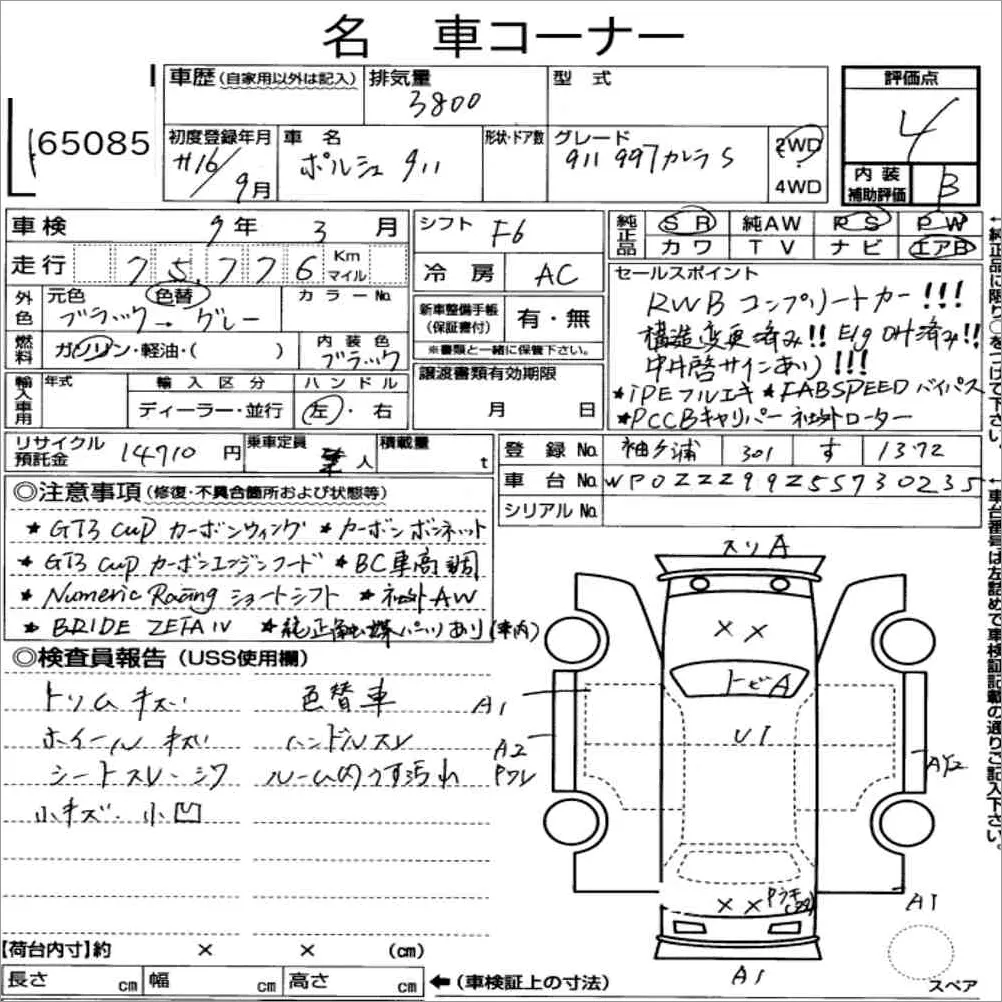 名 車コーナー
車歴(自家用以外は記入) 排気量 型式 評価点
3800
165085
4
初度登録年月 車名 形状・ドア数 グレード 2WD
H16/9月 ポルシェ 911 911 997カレラS 4WD
内装補助評価 B
車検 9年 3月 シフト F6
純正品 SR 純AW PS PW
カワ TV ナビ エアB
走行 75,776 Km マイル
冷房 AC
セールスポイント
RWB コンプリートカー!!!
構造変更済み!! E/g OH済み!!
中井啓サインあり!!!
★iPEフルエキ ★FABSPEEDバイパス
★PCCBキャリパー 社外ローター
外色 元色 色替 カラーNo.
ブラック→グレー
新車整備手帳(保証書付) 有・無
※書類と一緒に保管下さい。
燃料 ガソリン・軽油・( ) 内装色
ブラック
輸入車用 年式 輸入区分 ハンドル
ディーラー・並行 左・右
譲渡書類有効期限
月 日
リサイクル預託金 14710円 乗車定員 人 積載量 t
登録No. 袖ケ浦 301 す 1372
車台No. WP0ZZZ99Z5S730235
シリアルNo.
◎注意事項(修復・不具合箇所および状態等)
★GT3 cup カーボンウィング ★カーボンボンネット
★GT3 cup カーボンエンジンフード ★BC車高調
★Numeric Racing ショートシフト ★社外AW
★BRIDE ZETA IV ★純正触媒パーツあり(車内)
◎検査員報告(USS使用欄)
トリムキズ 色替車
ホイールキズ ハンドルスレ
シートスレ・シワ ルーム内うす汚れ
小キズ・小凹
スリA
××
トビA
A1
U1
A2
Pワレ
××
A1
A1
スペア
【荷台内寸】約 × × (cm)
長さ cm 幅 cm 高さ cm ←(車検証上の寸法)
↑純正品に限り○をつけて下さい。
↑車台番号は左詰めで車検証記載の通りご記入下さい。